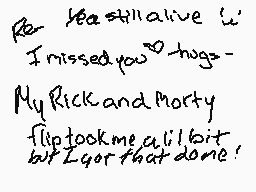 Re- Yea still alive
I missed you -hugs-
My Rick and Morty
flip took me a lil bit
but I got that done!